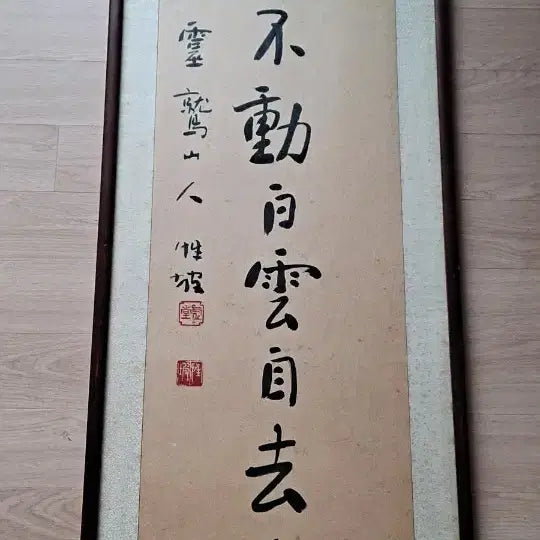 不動白雲自去
靈鷲山人 性坡